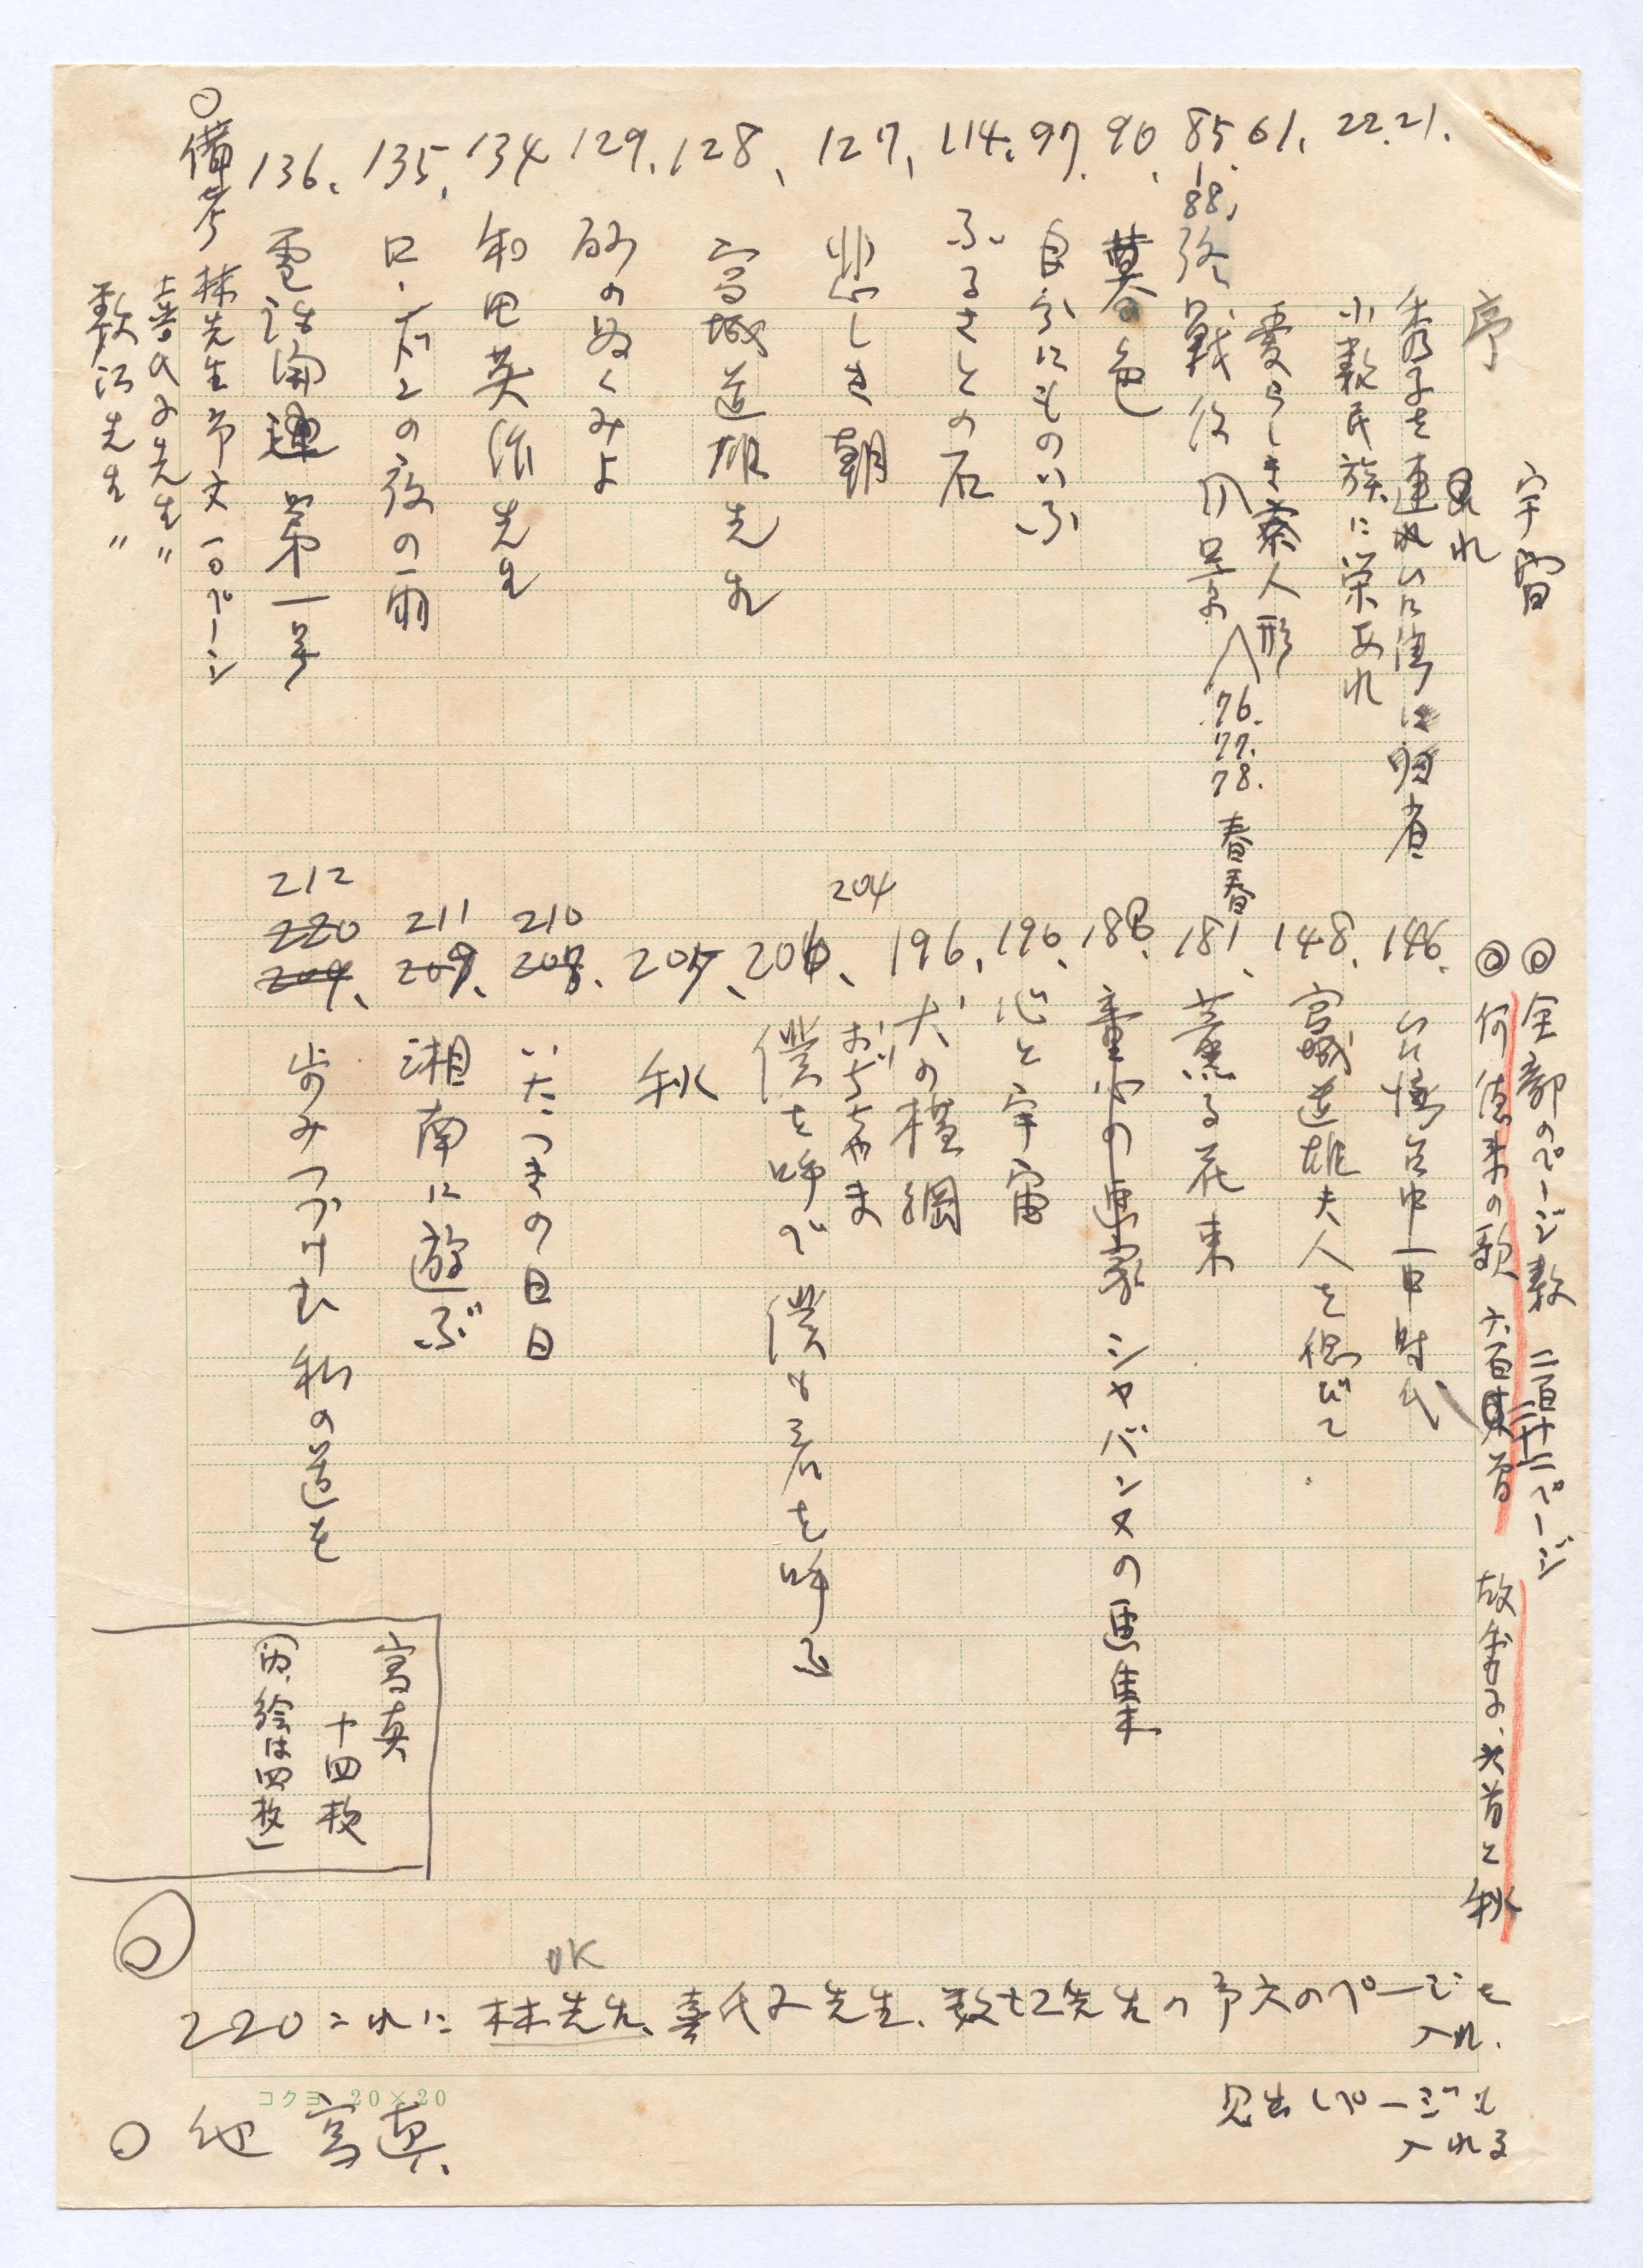 序
21. 秀子を連れ台湾に帰省
22. 小数民族に栄あれ
61. 愛らしき蕃人形
85. 88. 終戦后風景 76. 77. 78. 春春
90. 暮色
97. 自分にものいふ
114. ふるさとの石
127. 悲しき朝
128. 宮城道雄先生
129. 砂のぬくみよ
134 和田英作先生
135. ロンドンの夜の雨
136. 電話開通第一号
○備考 林先生序文 一〇ページ
喜代子先生 〃
数江先生 〃
◎全部のページ数 二百二十二ページ
◎何徳来の歌 六百 首 故秀子、六首と秋
146. 台中一中時代
148. 宮城道雄夫人を偲びて
181. 薫る花束
188. 童心の画家シャバンヌの画集
190. 心と宇宙
196. 犬の横綱
204 おぢちゃま
僕を呼べ 僕も君を呼ぶ
205. 秋
210 208. いたつきの日日
211 209. 湘南に遊ぶ
212 220 209. 歩みつづけむ私の道を
写真
十四枚
(内、絵は四枚)
OK
220これに林先生、喜代子先生、数江先生の序文のページを
入れ、
見出しページも
入れる
○他 写真、
コクヨ 20×20